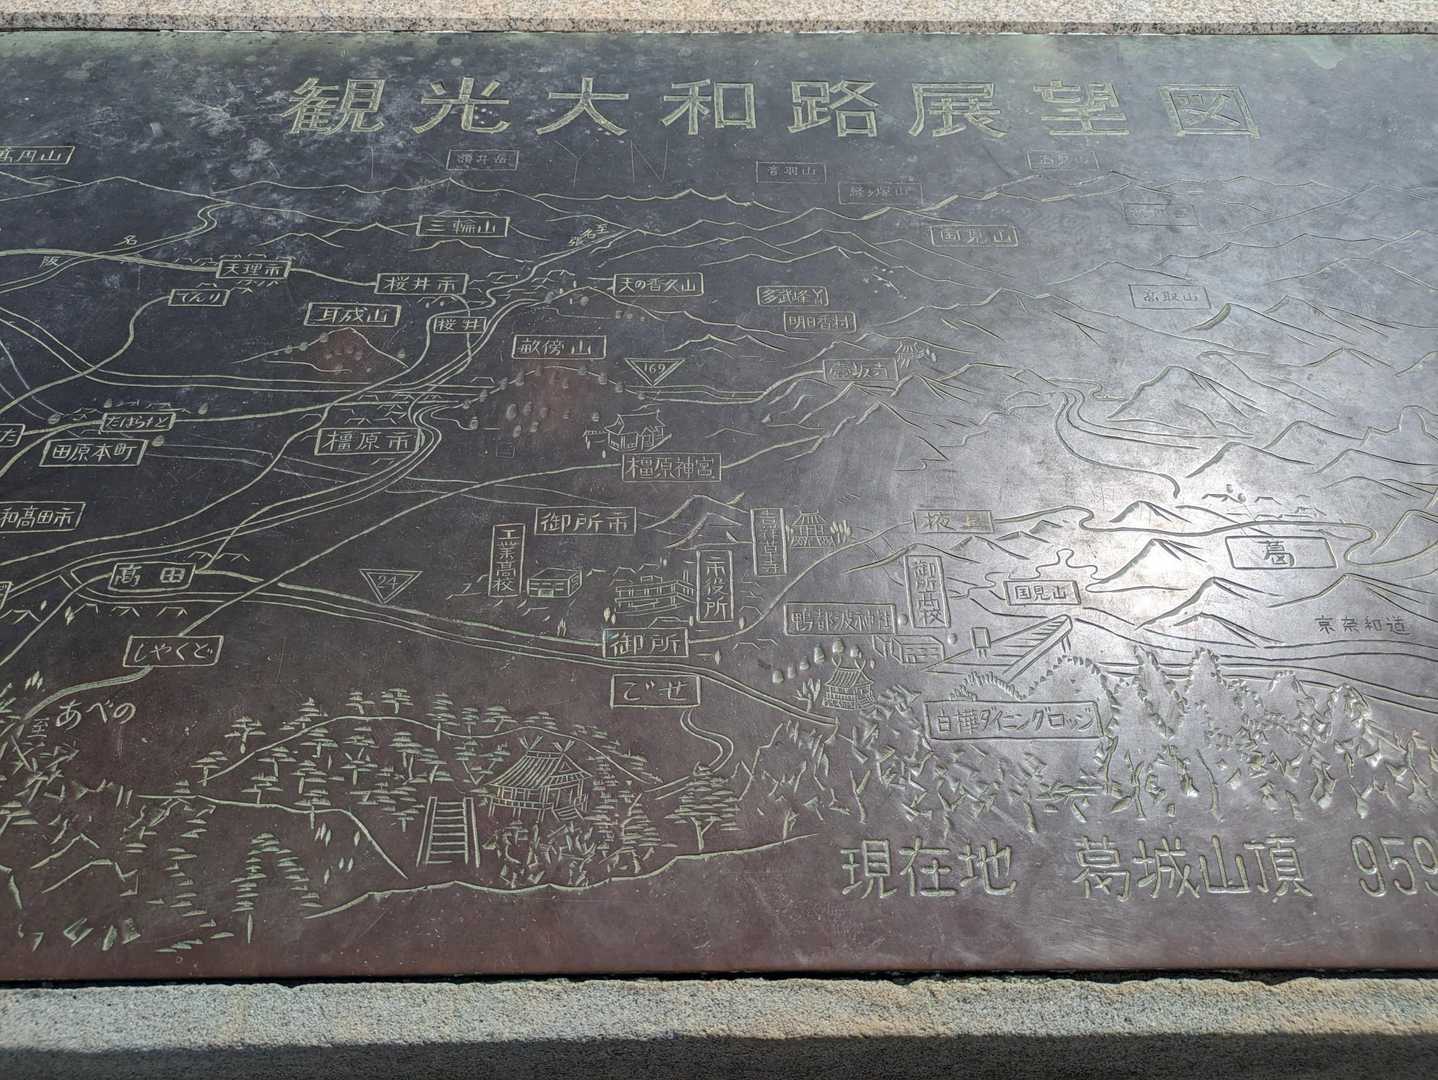 観光大和路展望図
高円山
額井岳
音羽山
経ヶ塚山
三輪山
国見山
至名張
名
阪
天理市
桜井市
天の香久山
てんり
多武峰
高取山
耳成山
桜井
明日香村
畝傍山
169
壷坂寺
たわらもと
た
田原本町
橿原市
橿原神宮
和高田市
御所市
工業高校
吉祥草寺
市役所
掖上
御所高校
葛
高田
24
国見山
鴨都波神社
京奈和道
しやくど
御所
ごせ
至あべの
白樺ダイニングロッジ
現在地 葛城山頂 959